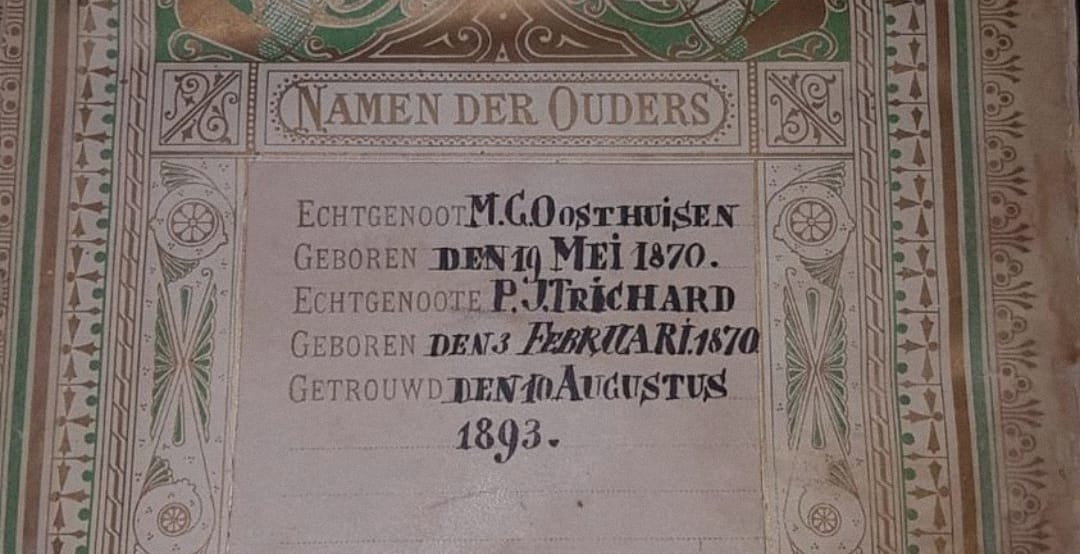 NAMEN DER OUDERS
ECHTGENOOT M.C.OOSTHUiSEN
GEBOREN DEN 19 MEi 1870.
ECHTGENOOTE P.J.TRiCHARD
GEBOREN DEN 3 FEBRUARi.1870
GETROUWD DEN 10 AUGUSTUS
1893.